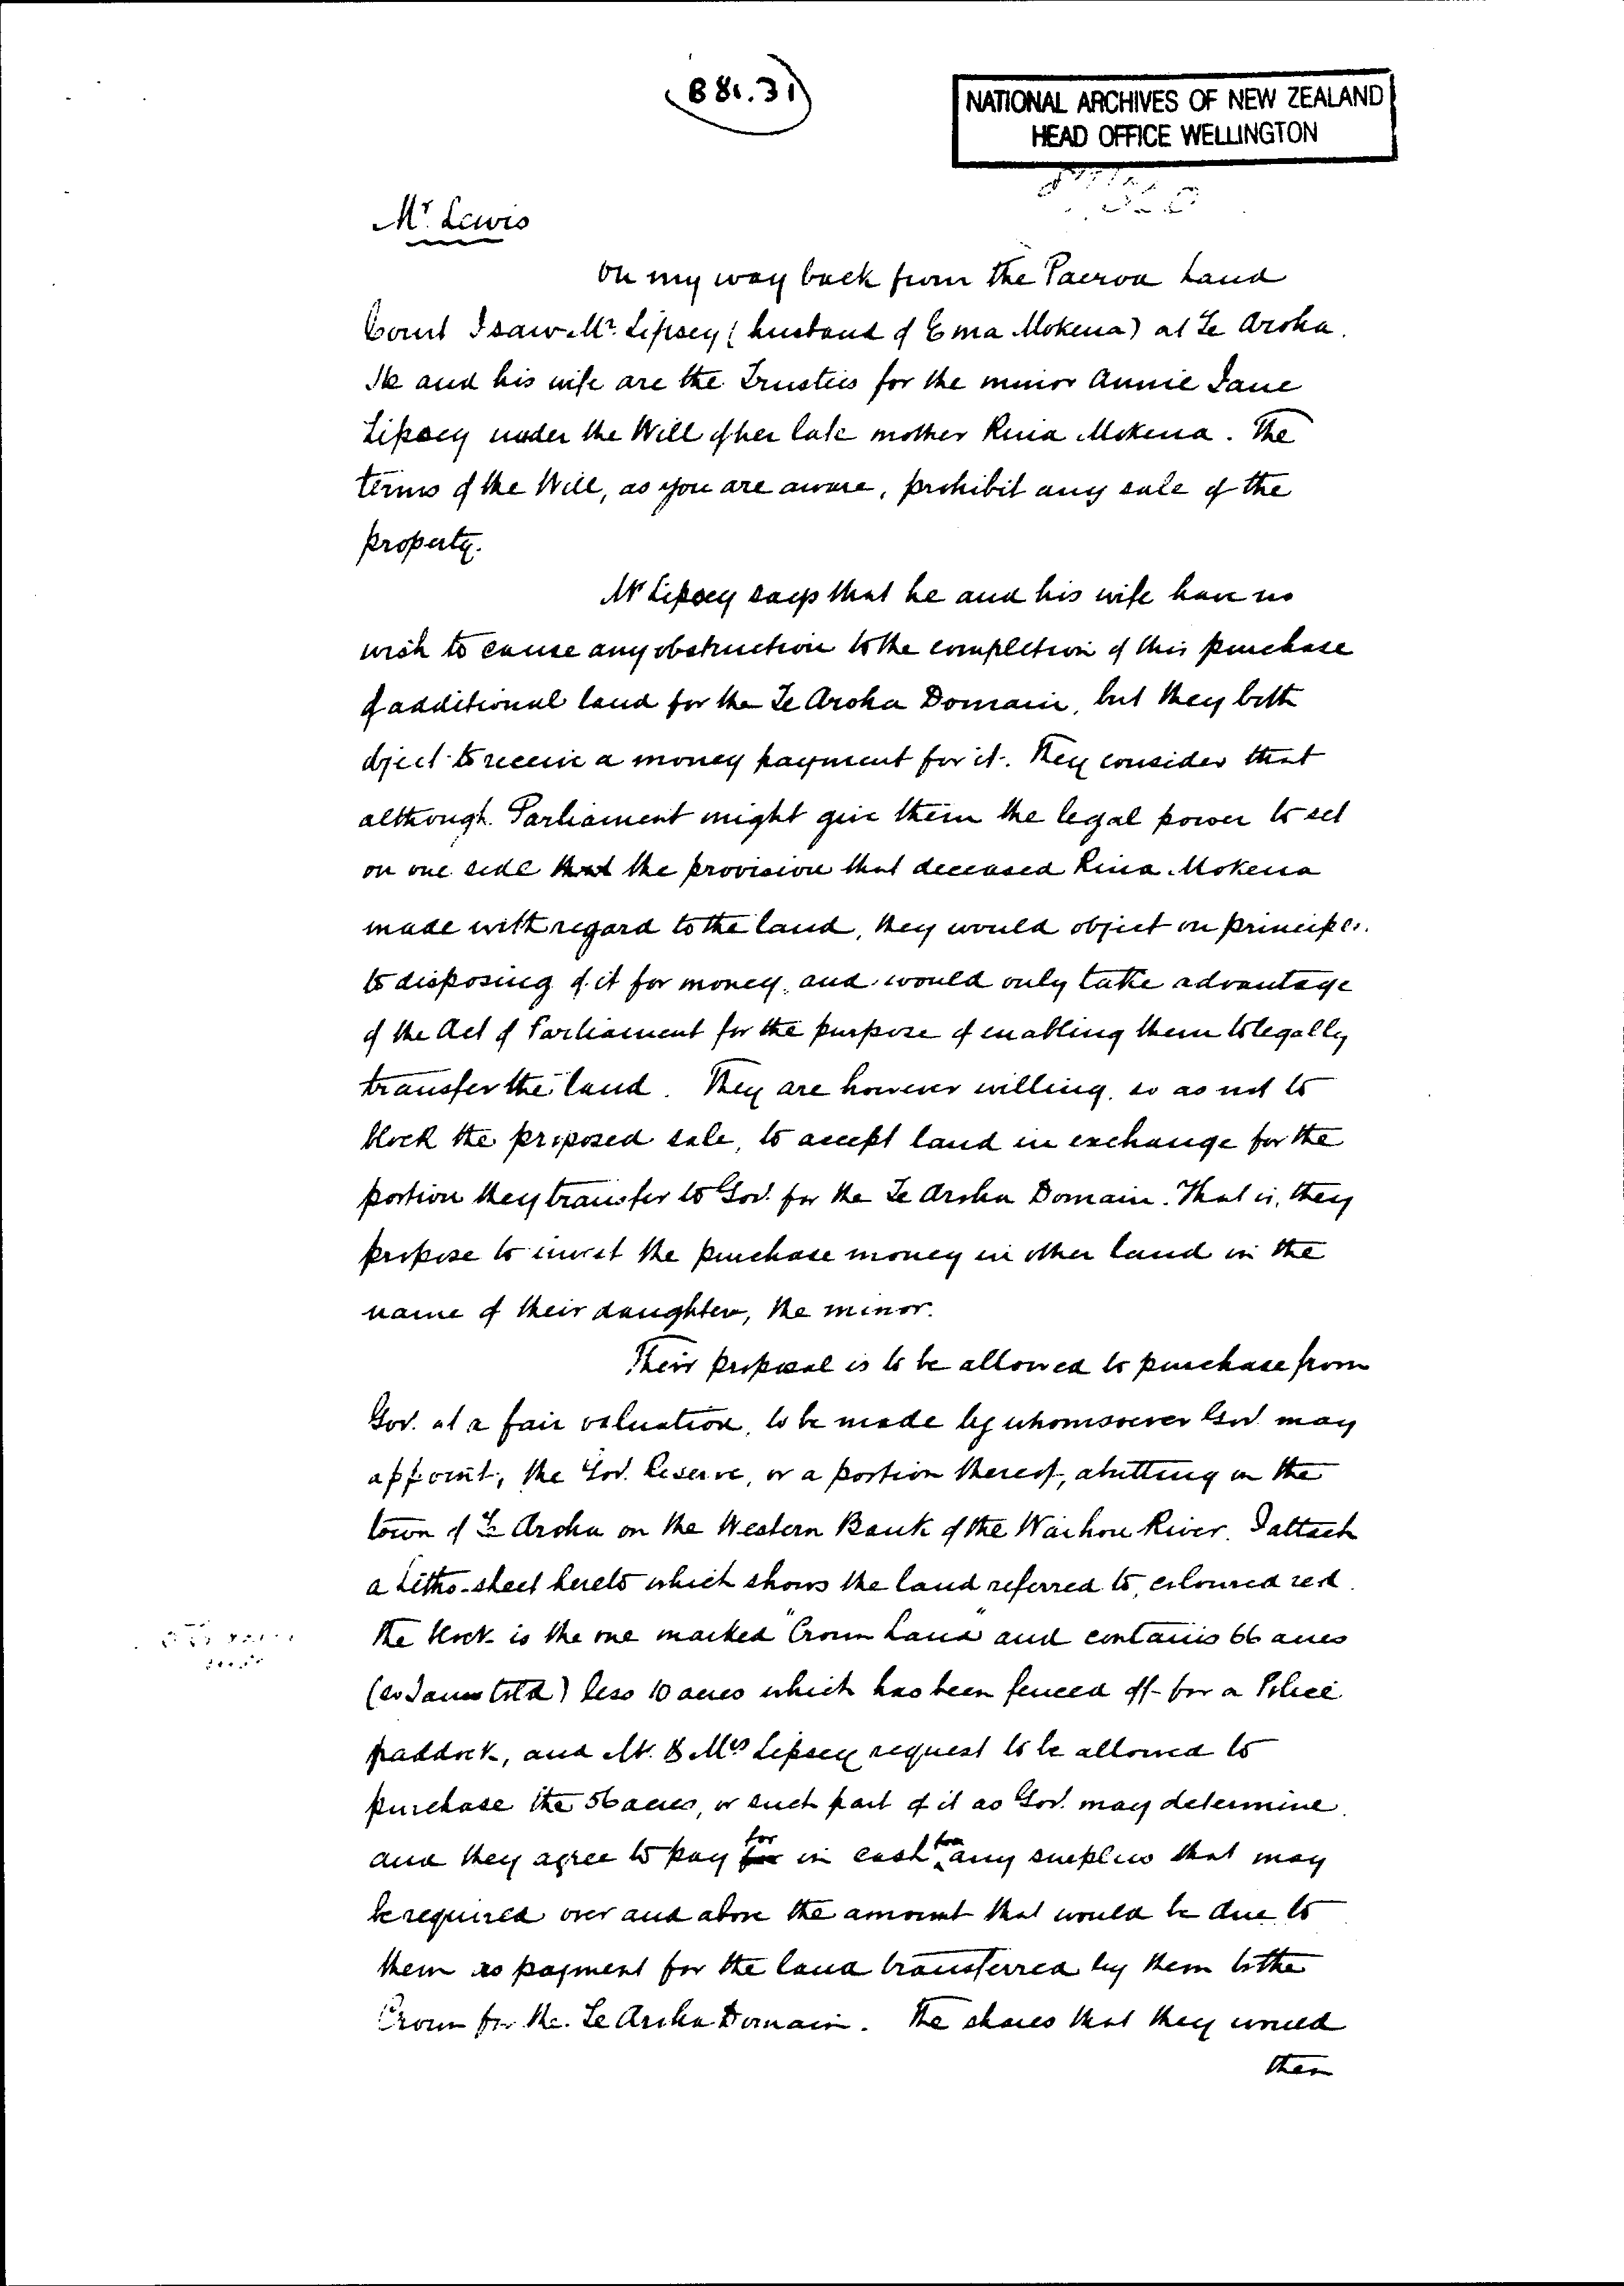 B 81.31
NATIONAL ARCHIVES OF NEW ZEALAND
HEAD OFFICE WELLINGTON
Mr. Lewis
On my way back from the Paeroa Land
Court I saw Mr. Lipsey (husband of Ema Mokena) at Te Aroha.
He and his wife are the Trustees for the minor Annie Jane
Lipsey under the Will of her late mother Rina Mokena. The
terms of the Will, as you are aware, prohibit any sale of the
property.
Mr Lipsey says that he and his wife have no
wish to cause any obstruction to the completion of this purchase
of additional land for the Te Aroha Domain, but they both
object to receive a money payment for it. They consider that
although Parliament might give them the legal power to set
on one side the provision that deceased Rina Mokena
made with regard to the land, they would object on principle
to disposing of it for money, and would only take advantage
of the Act of Parliament for the purpose of enabling them to legally
transfer the land. They are however willing, so as not to
block the proposed sale, to accept land in exchange for the
portion they transfer to Govt. for the Te Aroha Domain. That is, they
propose to invest the purchase money in other land in the
name of their daughter, the minor.
Their proposal is to be allowed to purchase from
Govt. at a fair valuation, to be made by whomsoever Govt. may
appoint, the Govt. Reserve, or a portion thereof, abutting on the
town of Te Aroha on the Western Bank of the Waihou River. I attach
a Litho-sheet hereto which shows the land referred to, coloured red.
The block is the one marked "Crown Land" and contains 66 acres
(so I am told) less 10 acres which has been fenced off for a Police
paddock, and Mr. & Mrs Lipsey request to be allowed to
purchase the 56 acres, or such part of it as Govt. may determine.
and they agree to pay for in cash any surplus that may
be required over and above the amount that would be due to
them as payment for the land transferred by them to the
Crown for the Te Aroha Domain. The shares that they would
then